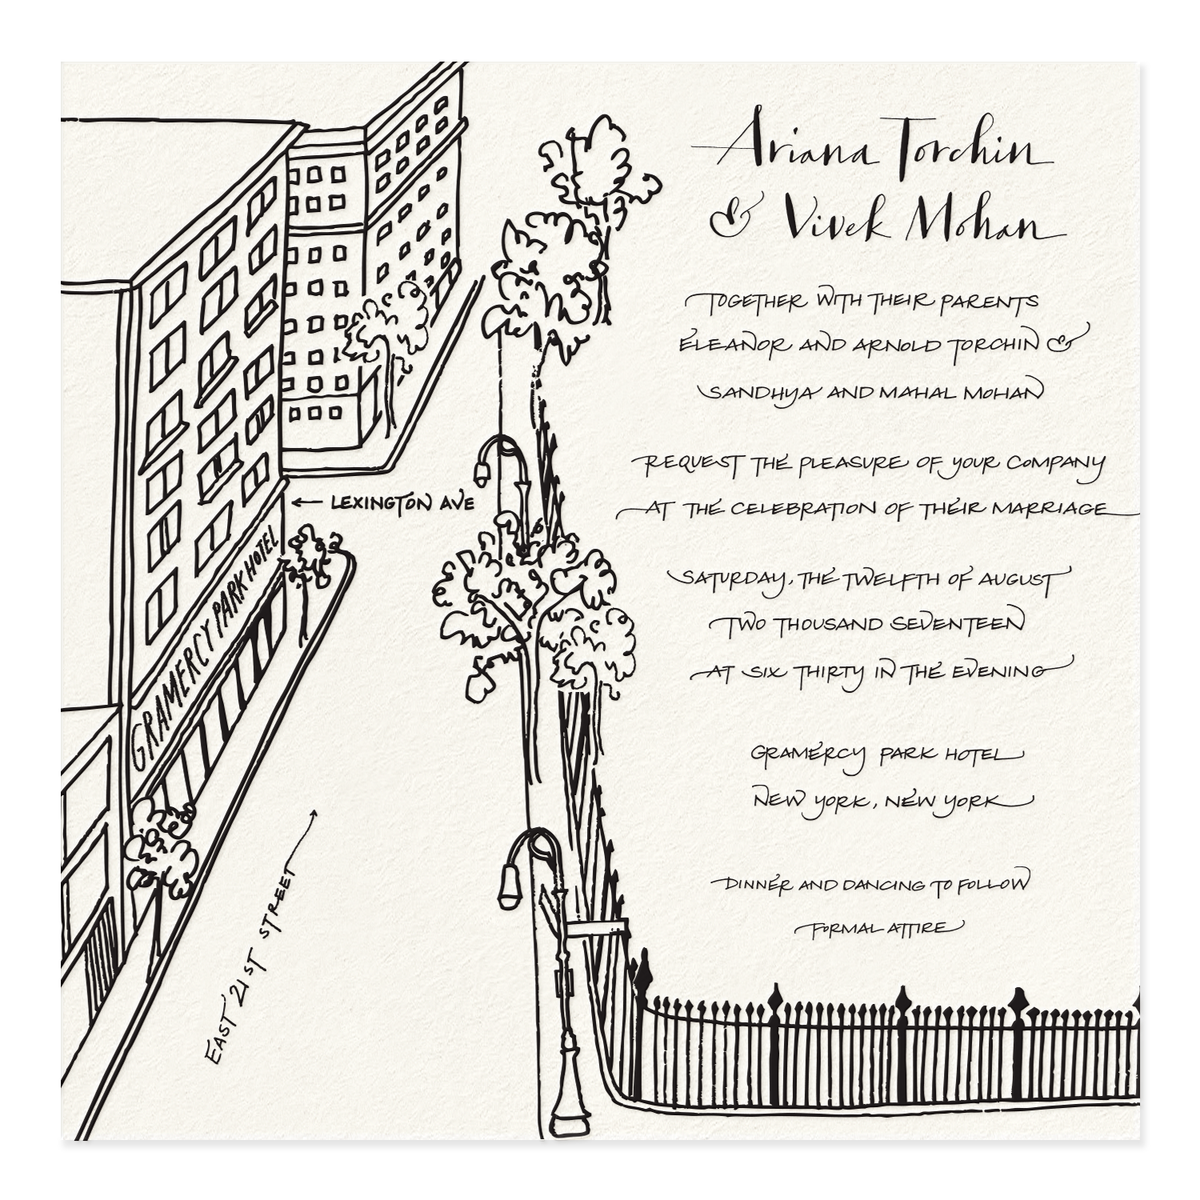 Ariana Torchin
& Vivek Mohan
TOGETHER WITH THEIR PARENTS
ELEANOR AND ARNOLD TORCHIN &
SANDHYA AND MAHAL MOHAN
REQUEST THE PLEASURE OF YOUR COMPANY
AT THE CELEBRATION OF THEIR MARRIAGE
SATURDAY, THE TWELFTH OF AUGUST
TWO THOUSAND SEVENTEEN
AT SIX THIRTY IN THE EVENING
GRAMERCY PARK HOTEL
NEW YORK, NEW YORK
DINNER AND DANCING TO FOLLOW
FORMAL ATTIRE
← LEXINGTON AVE
GRAMERCY PARK HOTEL
EAST 21ST STREET →